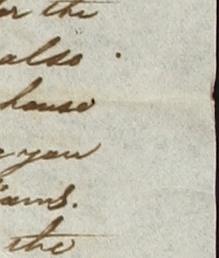 for the
also.
house
you
iams.
the